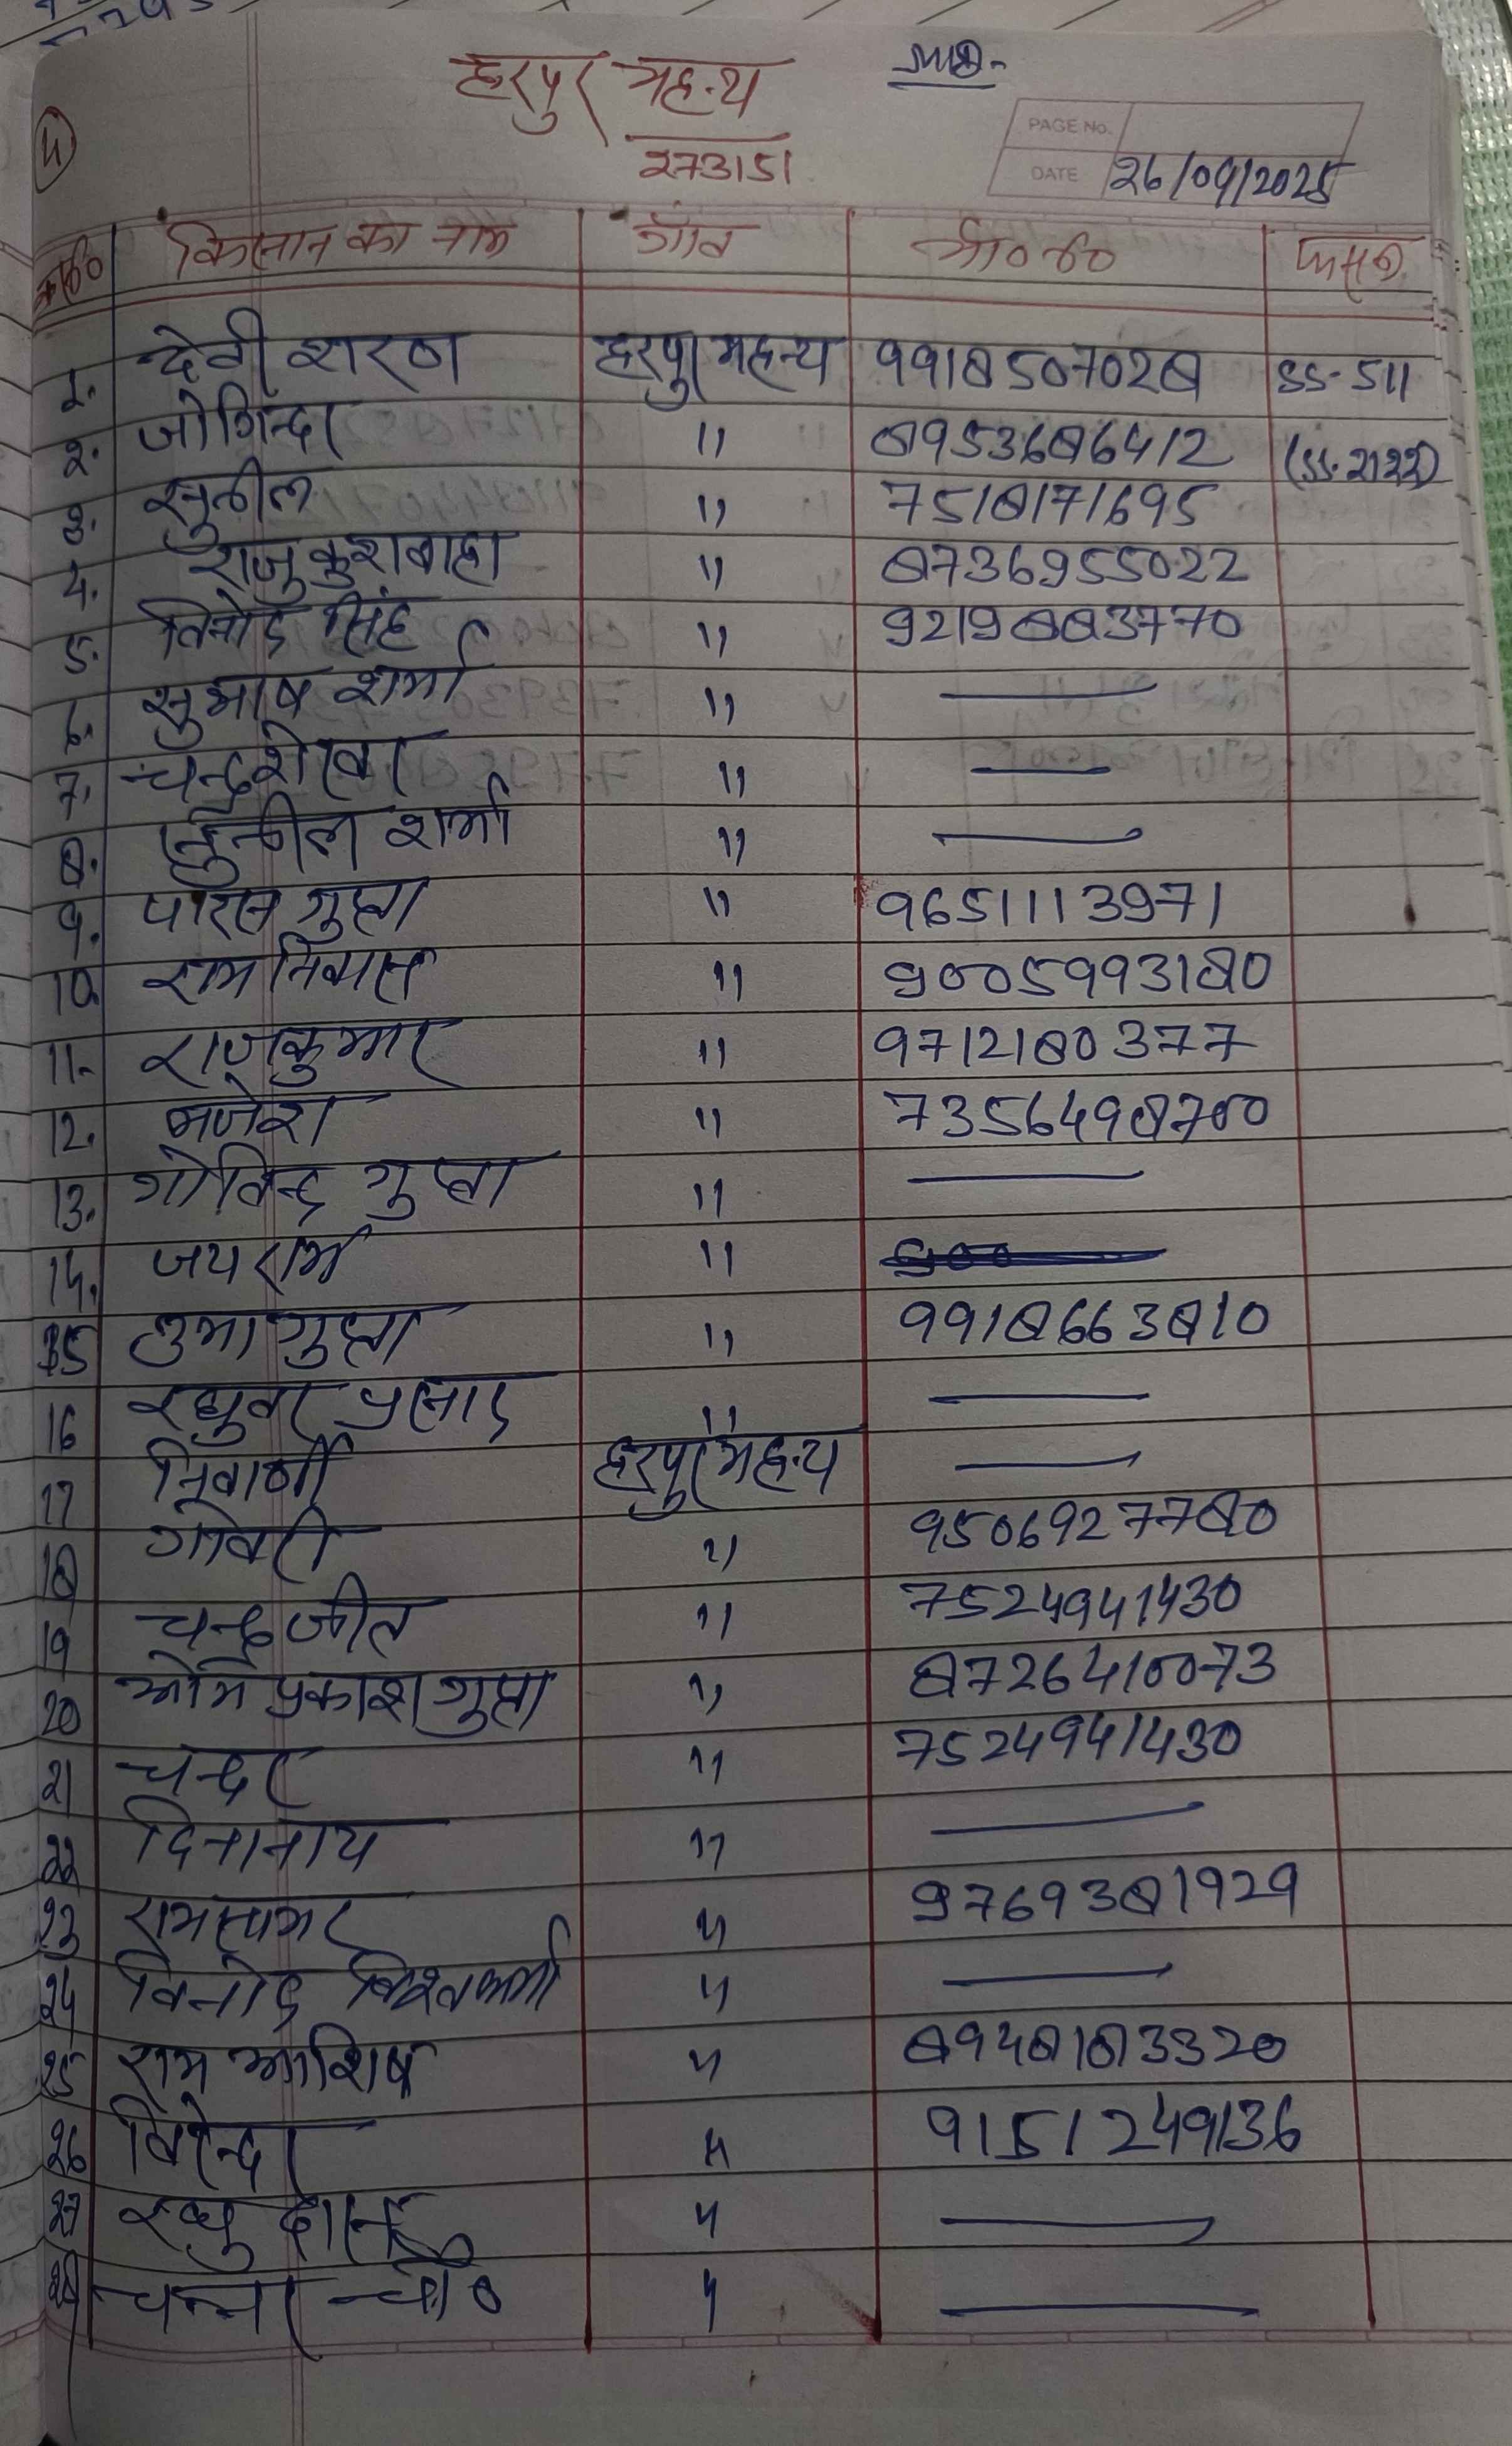 हरपुर महन्थ
273151
4
PAGE No.
DATE 26/09/2025
क्र०सं० किसान का नाम गाँव मो०नं० फसल
1. देवी शरण हरपुर महन्थ 9918507028 SS-511
2. जोगिन्दर " 8953686412 (SS.2122)
3. सुनील " 7518171695
4. राजु कुशवाहा " 8736955022
5. विनोद सिंह " 9219883770
6. सुभाष शर्मा " —
7. चन्द्रशेखर " —
8. सुनील शर्मा " —
9. पारस गुप्ता " 9651113971
10. राम निवास " 9005993180
11. राजकुमार " 9712180377
12. ब्रजेश " 7356498700
13. गोविन्द गुप्ता " —
14. जय राम "
15 उमा गुप्ता " 9918663810
16 रघुवर प्रसाद " —
17 हरपुर महन्थ —
18 " 9506927780
19 चन्द्रजीत " 7524941430
20 ओम प्रकाश गुप्ता " 8726410073
21 चन्दर " 7524941430
22 दिनानाथ " —
23 " 9769381929
24 विनोद विश्वकर्मा " —
25 राम आशिष " 8948183320
26 विरेन्दर " 9151249136
27 रघु " —
28 " —